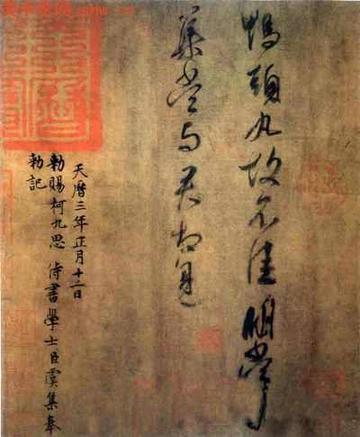 鴨頭丸故不佳明當必
集當與君相見
天曆三年正月十二日
勑賜柯九思 侍書學士臣虞集奉
勑記